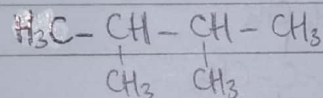 H₃C – CH – CH – CH₃
CH₃ CH₃